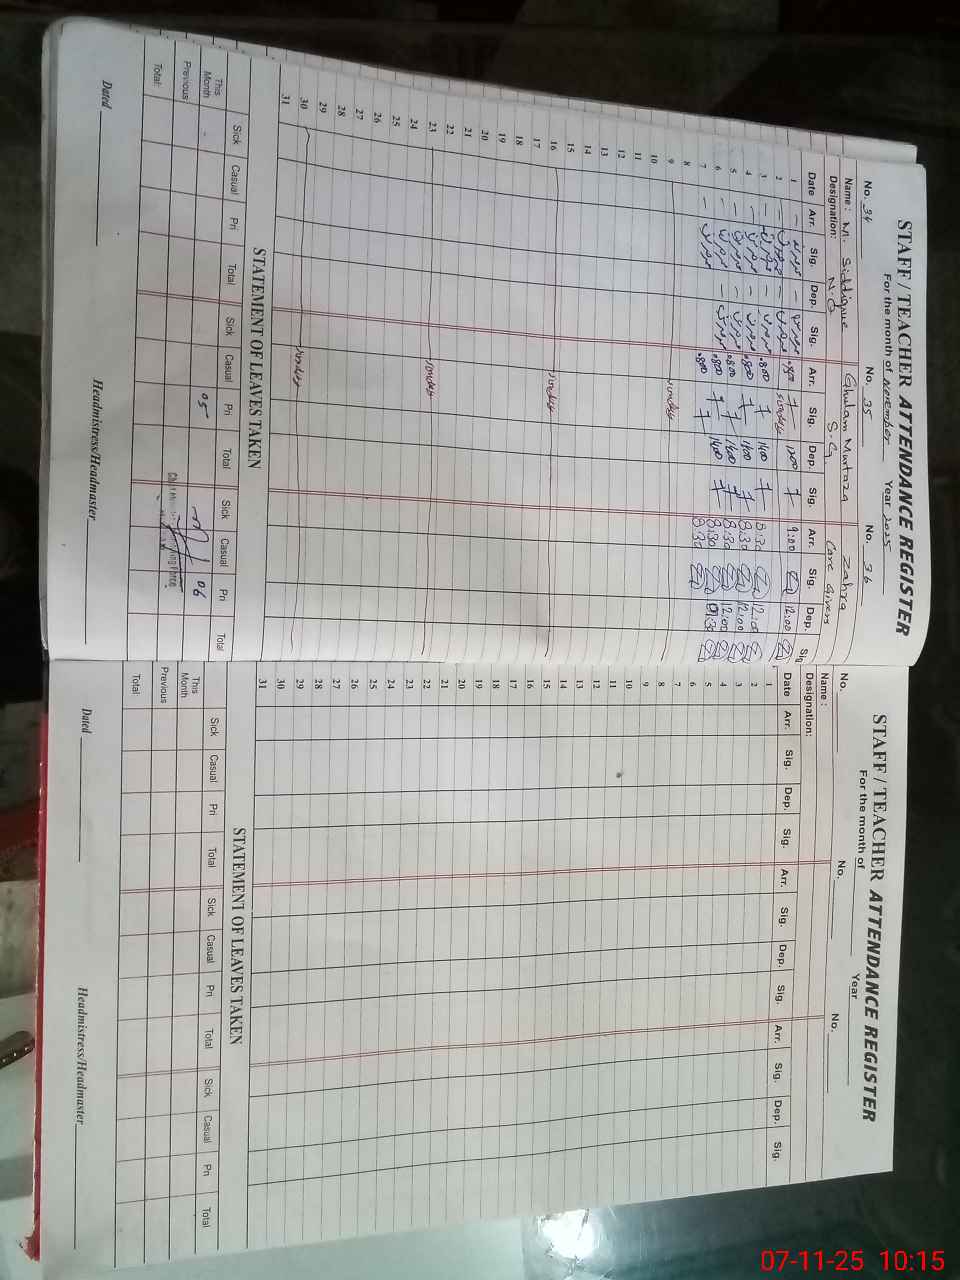 STAFF / TEACHER ATTENDANCE REGISTER
For the month of November Year 2025
No. 34 No. 35 No. 36
Name: M. Siddique Ghulam Murtaza Zahra
Designation: N.Q S.G Care Givers
Date Arr. Sig. Dep. Sig. Arr. Sig. Dep. Sig. Arr. Sig. Dep. Sig
1 – – 0800 1200 9:00 12:00
2 – – Sunday
3 – – 0800 1400 8:30 12:00
4 – – 0800 1600 8:30 12:00
5 – – 0800 1600 8:30 12:00
6 – – 0800 1400 8:30 01:30
7 – 0800 8:30
8
9 Sunday
10
11
12
13
14
15
16 Sunday
17
18
19
20
21
22
23 Sunday
24
25
26
27
28
29
30 Sunday
31
STATEMENT OF LEAVES TAKEN
Sick Casual Pri Total Sick Casual Pri Total Sick Casual Pri Total
This Month 05 06
Previous
Total:
Dated Headmistress/Headmaster
STAFF / TEACHER ATTENDANCE REGISTER
For the month of Year
No. No. No.
Name:
Designation:
Date Arr. Sig. Dep. Sig. Arr. Sig. Dep. Sig. Arr. Sig. Dep. Sig.
1
2
3
4
5
6
7
8
9
10
11
12
13
14
15
16
17
18
19
20
21
22
23
24
25
26
27
28
29
30
31
STATEMENT OF LEAVES TAKEN
Sick Casual Pri Total Sick Casual Pri Total Sick Casual Pri Total
This Month
Previous
Total
Dated Headmistress/Headmaster
07-11-25 10:15